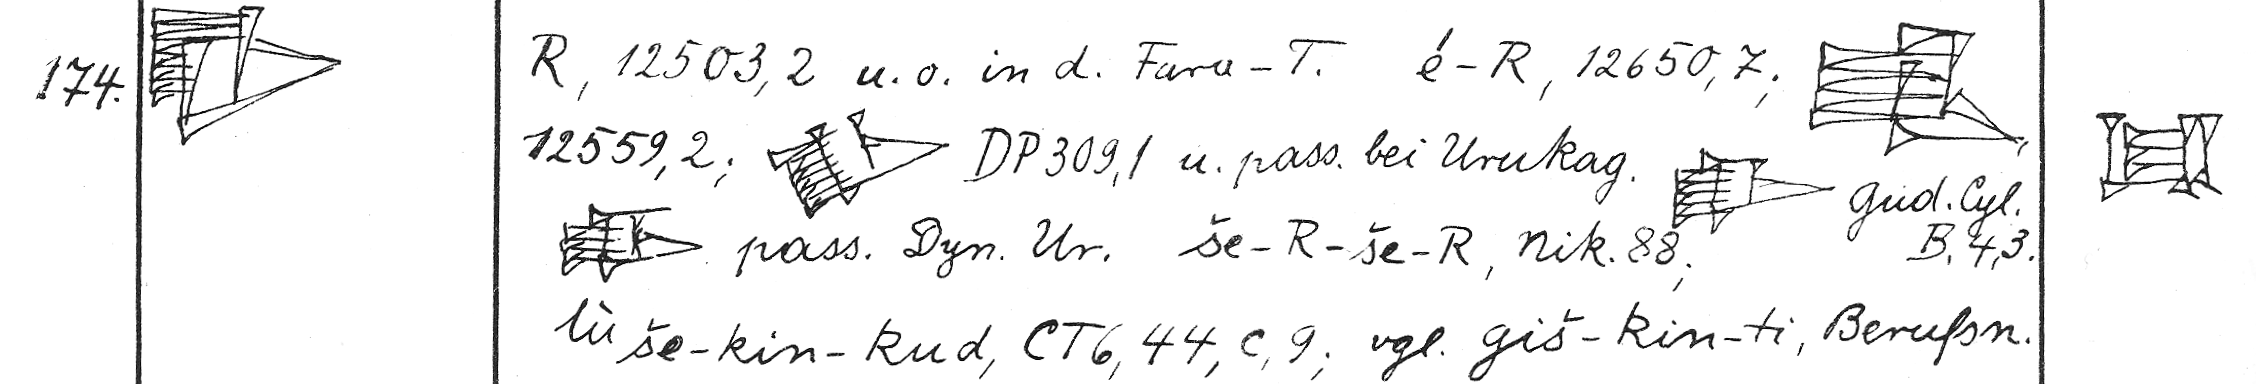 174. R, 12503,2 u. o. in d. Fara-T. é-R, 12650,7;
12559,2; DP 309,1 u. pass. bei Urukag. Gud. Cyl.
pass. Dyn. Ur. še-R-še-R, Nik. 88; B. 4,3.
lù še-kin-kud, CT 6, 44, c, 9; vgl. giš-kin-ti, Berufsn.